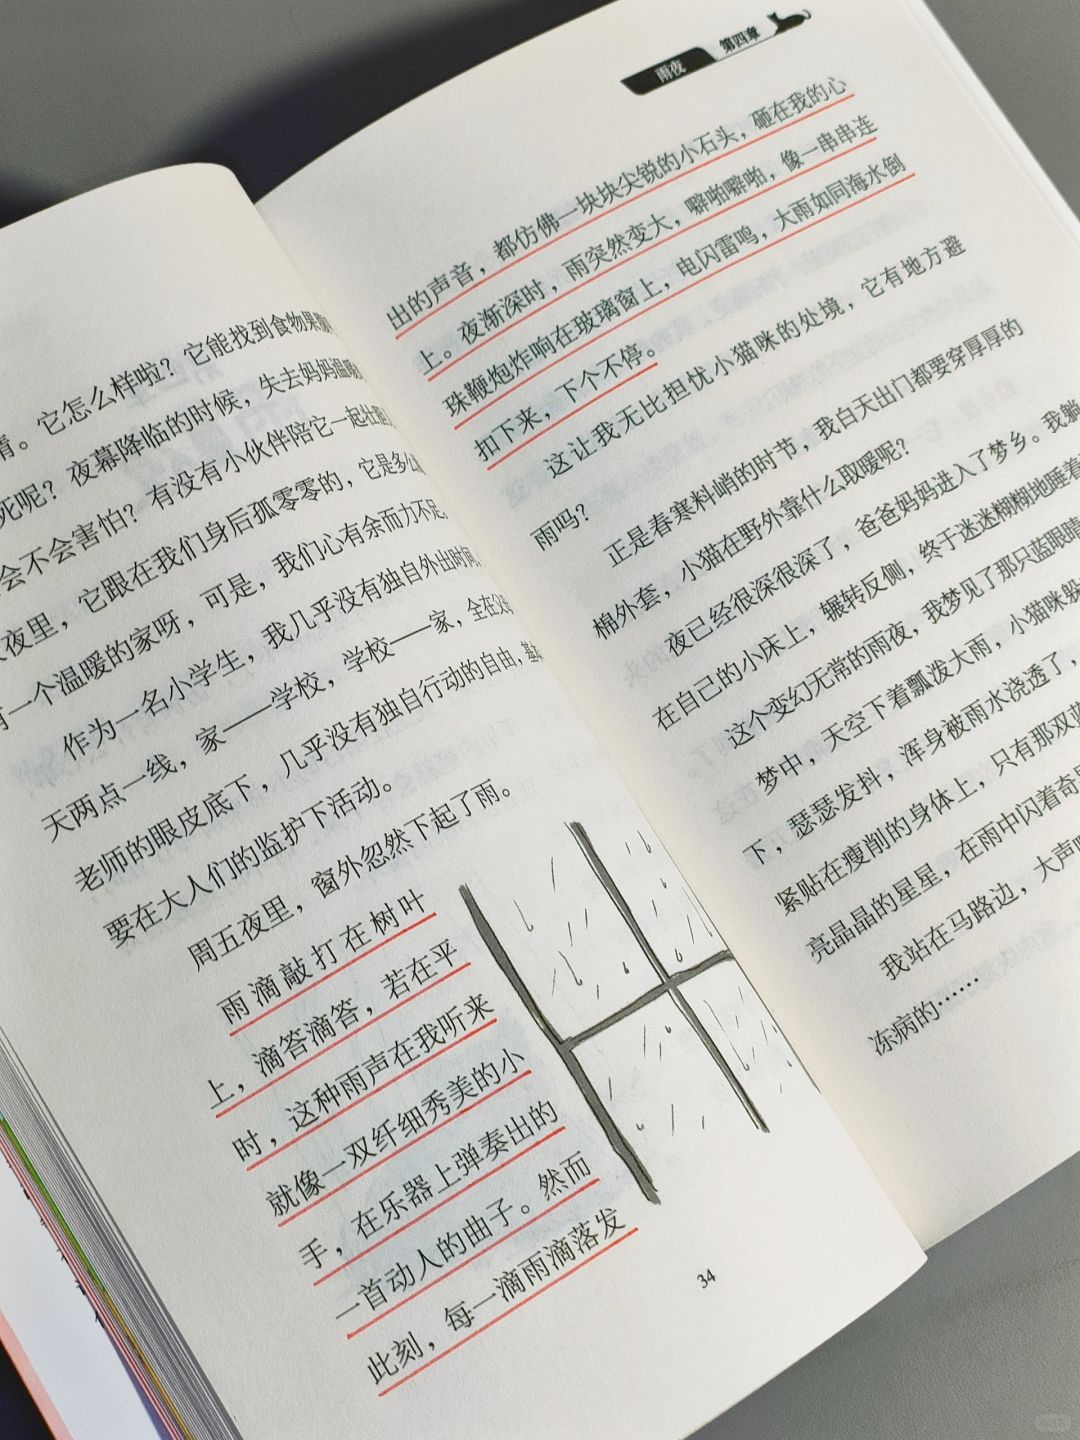 情。它怎么样啦？它能找到食物果腹
死呢？夜幕降临的时候，失去妈妈温
会不会害怕？有没有小伙伴陪它一起壮
夜里，它跟在我们身后孤零零的，它是多么
有一个温暖的家呀，可是，我们心有余而力不足，
作为一名小学生，我几乎没有独自外出时间，
天两点一线，家——学校，学校——家，全在父
老师的眼皮底下，几乎没有独自行动的自由，基
要在大人们的监护下活动。
周五夜里，窗外忽然下起了雨。
雨滴敲打在树叶
上，滴答滴答，若在平
时，这种雨声在我听来
就像一双纤细秀美的小
手，在乐器上弹奏出的
一首动人的曲子。然而
此刻，每一滴雨滴落发
34
雨夜 第四章
出的声音，都仿佛一块块尖锐的小石头，砸在我的心
上。夜渐深时，雨突然变大，噼啪噼啪，像一串串连
珠鞭炮炸响在玻璃窗上，电闪雷鸣，大雨如同海水倒
扣下来，下个不停。
这让我无比担忧小猫咪的处境，它有地方避
雨吗？
正是春寒料峭的时节，我白天出门都要穿厚厚的
棉外套，小猫在野外靠什么取暖呢？
夜已经很深很深了，爸爸妈妈进入了梦乡。我躺
在自己的小床上，辗转反侧，终于迷迷糊糊地睡着
这个变幻无常的雨夜，我梦见了那只蓝眼睛
梦中，天空下着瓢泼大雨，小猫咪躲
下，瑟瑟发抖，浑身被雨水浇透了，
紧贴在瘦削的身体上，只有那双蓝
亮晶晶的星星，在雨中闪着奇
我站在马路边，大声
冻病的……